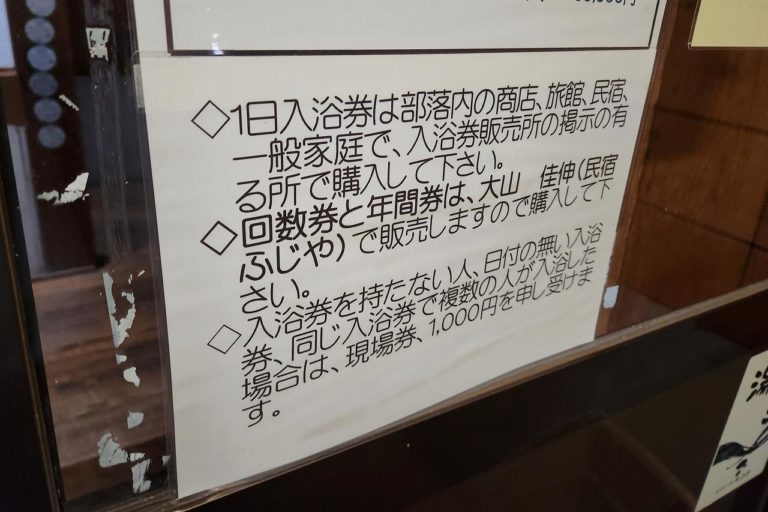 ◇1日入浴券は部落内の商店、旅館、民宿、
一般家庭で、入浴券販売所の掲示の有
る所で購入して下さい。
◇回数券と年間券は、大山 佳伸(民宿
ふじや)で販売しますので購入して下
さい。
◇入浴券を持たない人、日付の無い入浴
券、同じ入浴券で複数の人が入浴した
場合は、現場券、1,000円を申し受けま
す。